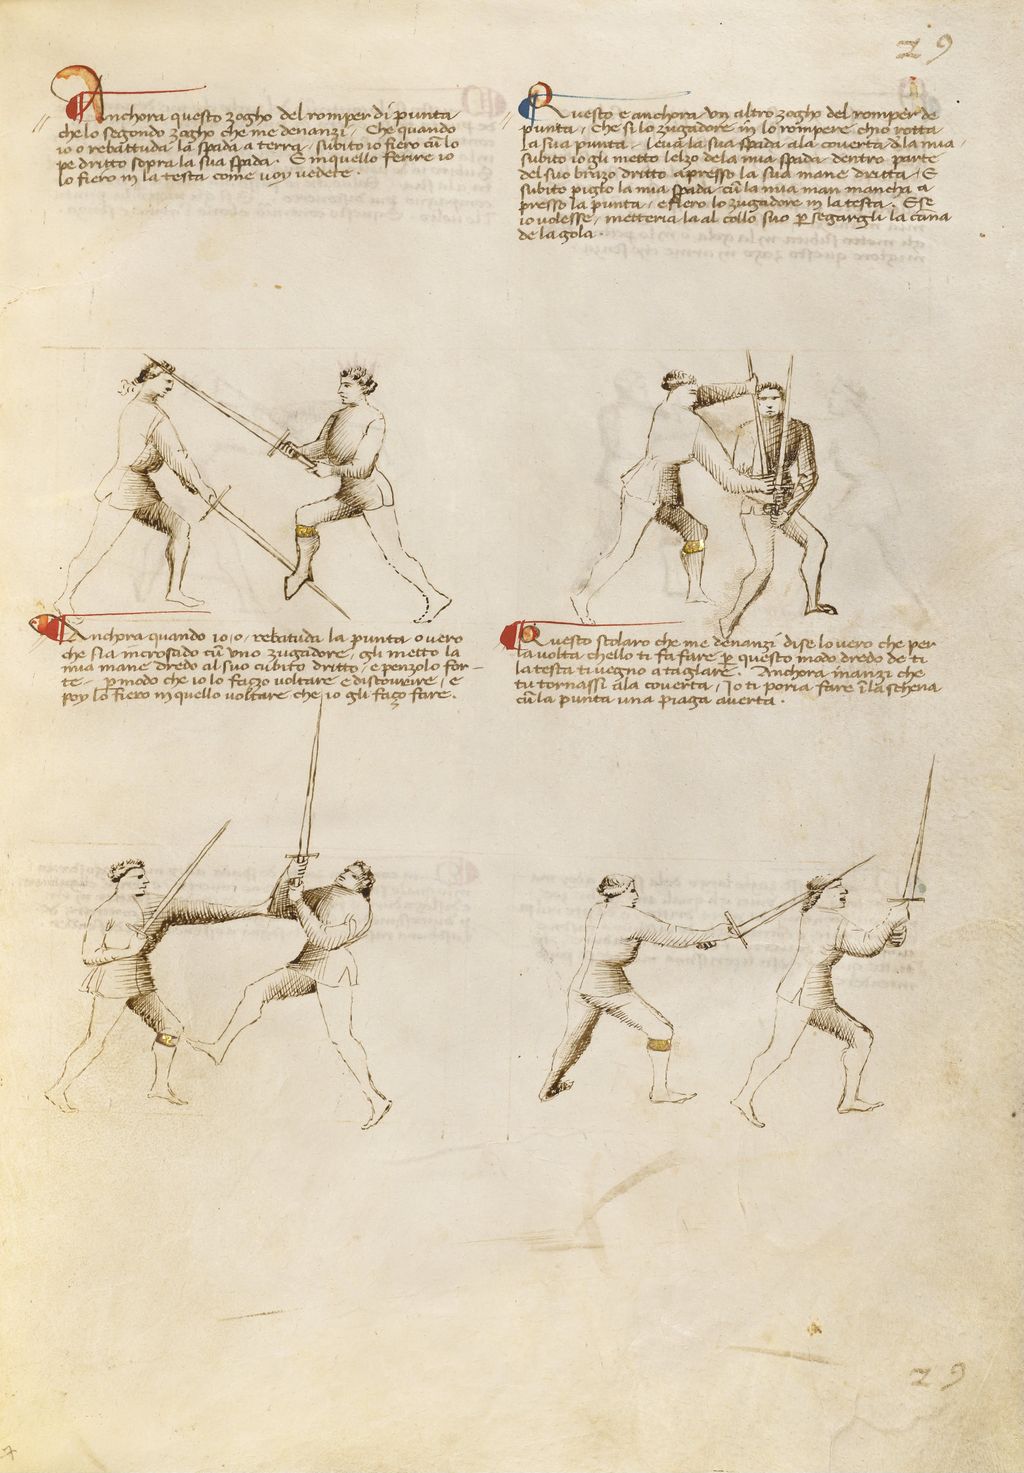 29
Anchora questo zogho del romper di punta
che lo segondo zogho che me denanzi, Che quando
io o rebattuda la spada a terra, subito io fiero cu͂ lo
pe dritto sopra la sua spada. E in quello ferire io
lo fiero in la testa come voy vedete.
Questo e anchora un altro zogho del romper de
punta, che si lo zugadore in lo rompere ch'io rotta
la sua punta, leva la sua spada ala coverta d'la mia,
subito io gli metto l'elzo dela mia spada dentro parte
del suo brazo dritto apresso la sua mane dritta, E
subito piglo la mia spada cu͂ la mia man mancha a
presso la punta, e fiero lo zugadore in la testa. E se
io volesse, metteria la al collo suo p segargli la cana
de la gola.
Anchora quando io, o, rebatuda la punta o vero
che sia incrosado cu͂ uno zugadore, gli metto la
mia mane dredo al suo cubito dritto, e penzolo for-
te p modo che io lo fazzo voltare e discovrire, e
poy lo fiero in quello voltare che io gli fazo fare.
Questo scolaro che me denanzi dise lo vero che per
la volta ch'ello ti fa fare p questo modo dredo de ti
la testa ti vegno a taglare. Anchora inanzi che
tu tornassi ala coverta, Io ti poria fare i͂ la schena
cu͂ la punta una piaga averta.
29